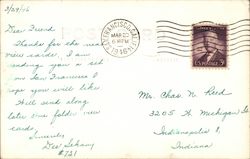 3/29/46
SAN FRANCISCO, CALIF.
MAR 29
6 PM
1946
Dear Friend
Thanks for the
view cards. I am
sending you a set
on San Francisco I
hope you will like
Will send along
later two folder view
cards.
Sincerely,
Dee
#721
U.S. POSTAGE 3¢
Mr. Chas. N. Reed
3205 N. Michigan St.
Indianapolis
Indiana